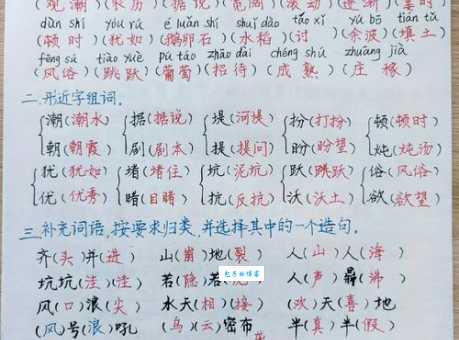 (观潮)(农历)(据说)(宽阔)(滚动)(逐渐)(霎时)
dùn shí yóu rú é luǎn shí shuǐ dào tǎo xī yú bō tián tǔ
(顿时)(犹如)(鹅卵石)(水稻)(讨 )(余波)(填土)
fēng sú tiào yuè pú táo zhāo dài chéng shú zhuāng jià
(风俗)(跳跃)(葡萄)(招待)(成熟)(庄稼)
二、形近字组词。
潮(潮水) 据(据说) 堤(河堤) 扮(打扮) 顿(顿时)
朝(朝霞) 剧(剧本) 提(提问) 盼(盼望) 炖(炖汤)
犹(犹如) 堵(堵住) 坑(泥坑) 跃(跳跃) 俗(风俗)
优(优秀) 睹(目睹) 抗(反抗) 沃(沃土) 欲(欲望)
三、补充词语,按要求归类,并选择其中的一个造句。
齐(头)并(进) 山(崩)地(裂) 人(山)人(海)
坑坑(洼)(洼) 若(隐)若 人(声)鼎(沸)
包子的博客
风(口)浪(尖) 水天(相)(接) (欢)天(喜)地
(风)号(浪)吼 (乌)(云)密布 半(真)半(假)